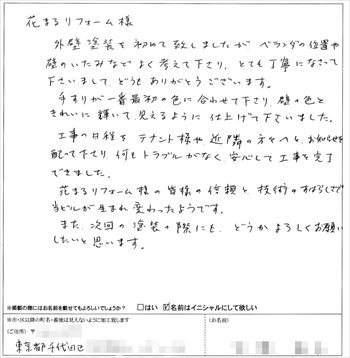 花まるリフォーム様
外壁塗装を初めて致しましたが ベランダの位置や
壁のいたみなど よく考えて下さり、とても丁寧になさって
下さいまして、どうもありがとうございます。
手すりが一番最初の色に合わせて下さり、壁の色と
きれいに輝いて見えるように仕上げて下さいました。
工事の日程をテナント様や近隣の方々へと、お知らせを
配って下さり、何もトラブルがなく、安心して工事を完了
できました。
花まるリフォーム様の皆様の信頼と技術のすばらしさで
当ビルが生まれ変わったようです。
また、次回の塗装の際にも、どうかよろしくお願い
したいと思います。
※掲載の際にはお名前を載せてもよろしいでしょうか？ □はい ☑名前はイニシャルにして欲しい
※市・区以降の町名・番地は見えないように加工致します
（ご住所） 〒
（お名前）
東京都千代田区